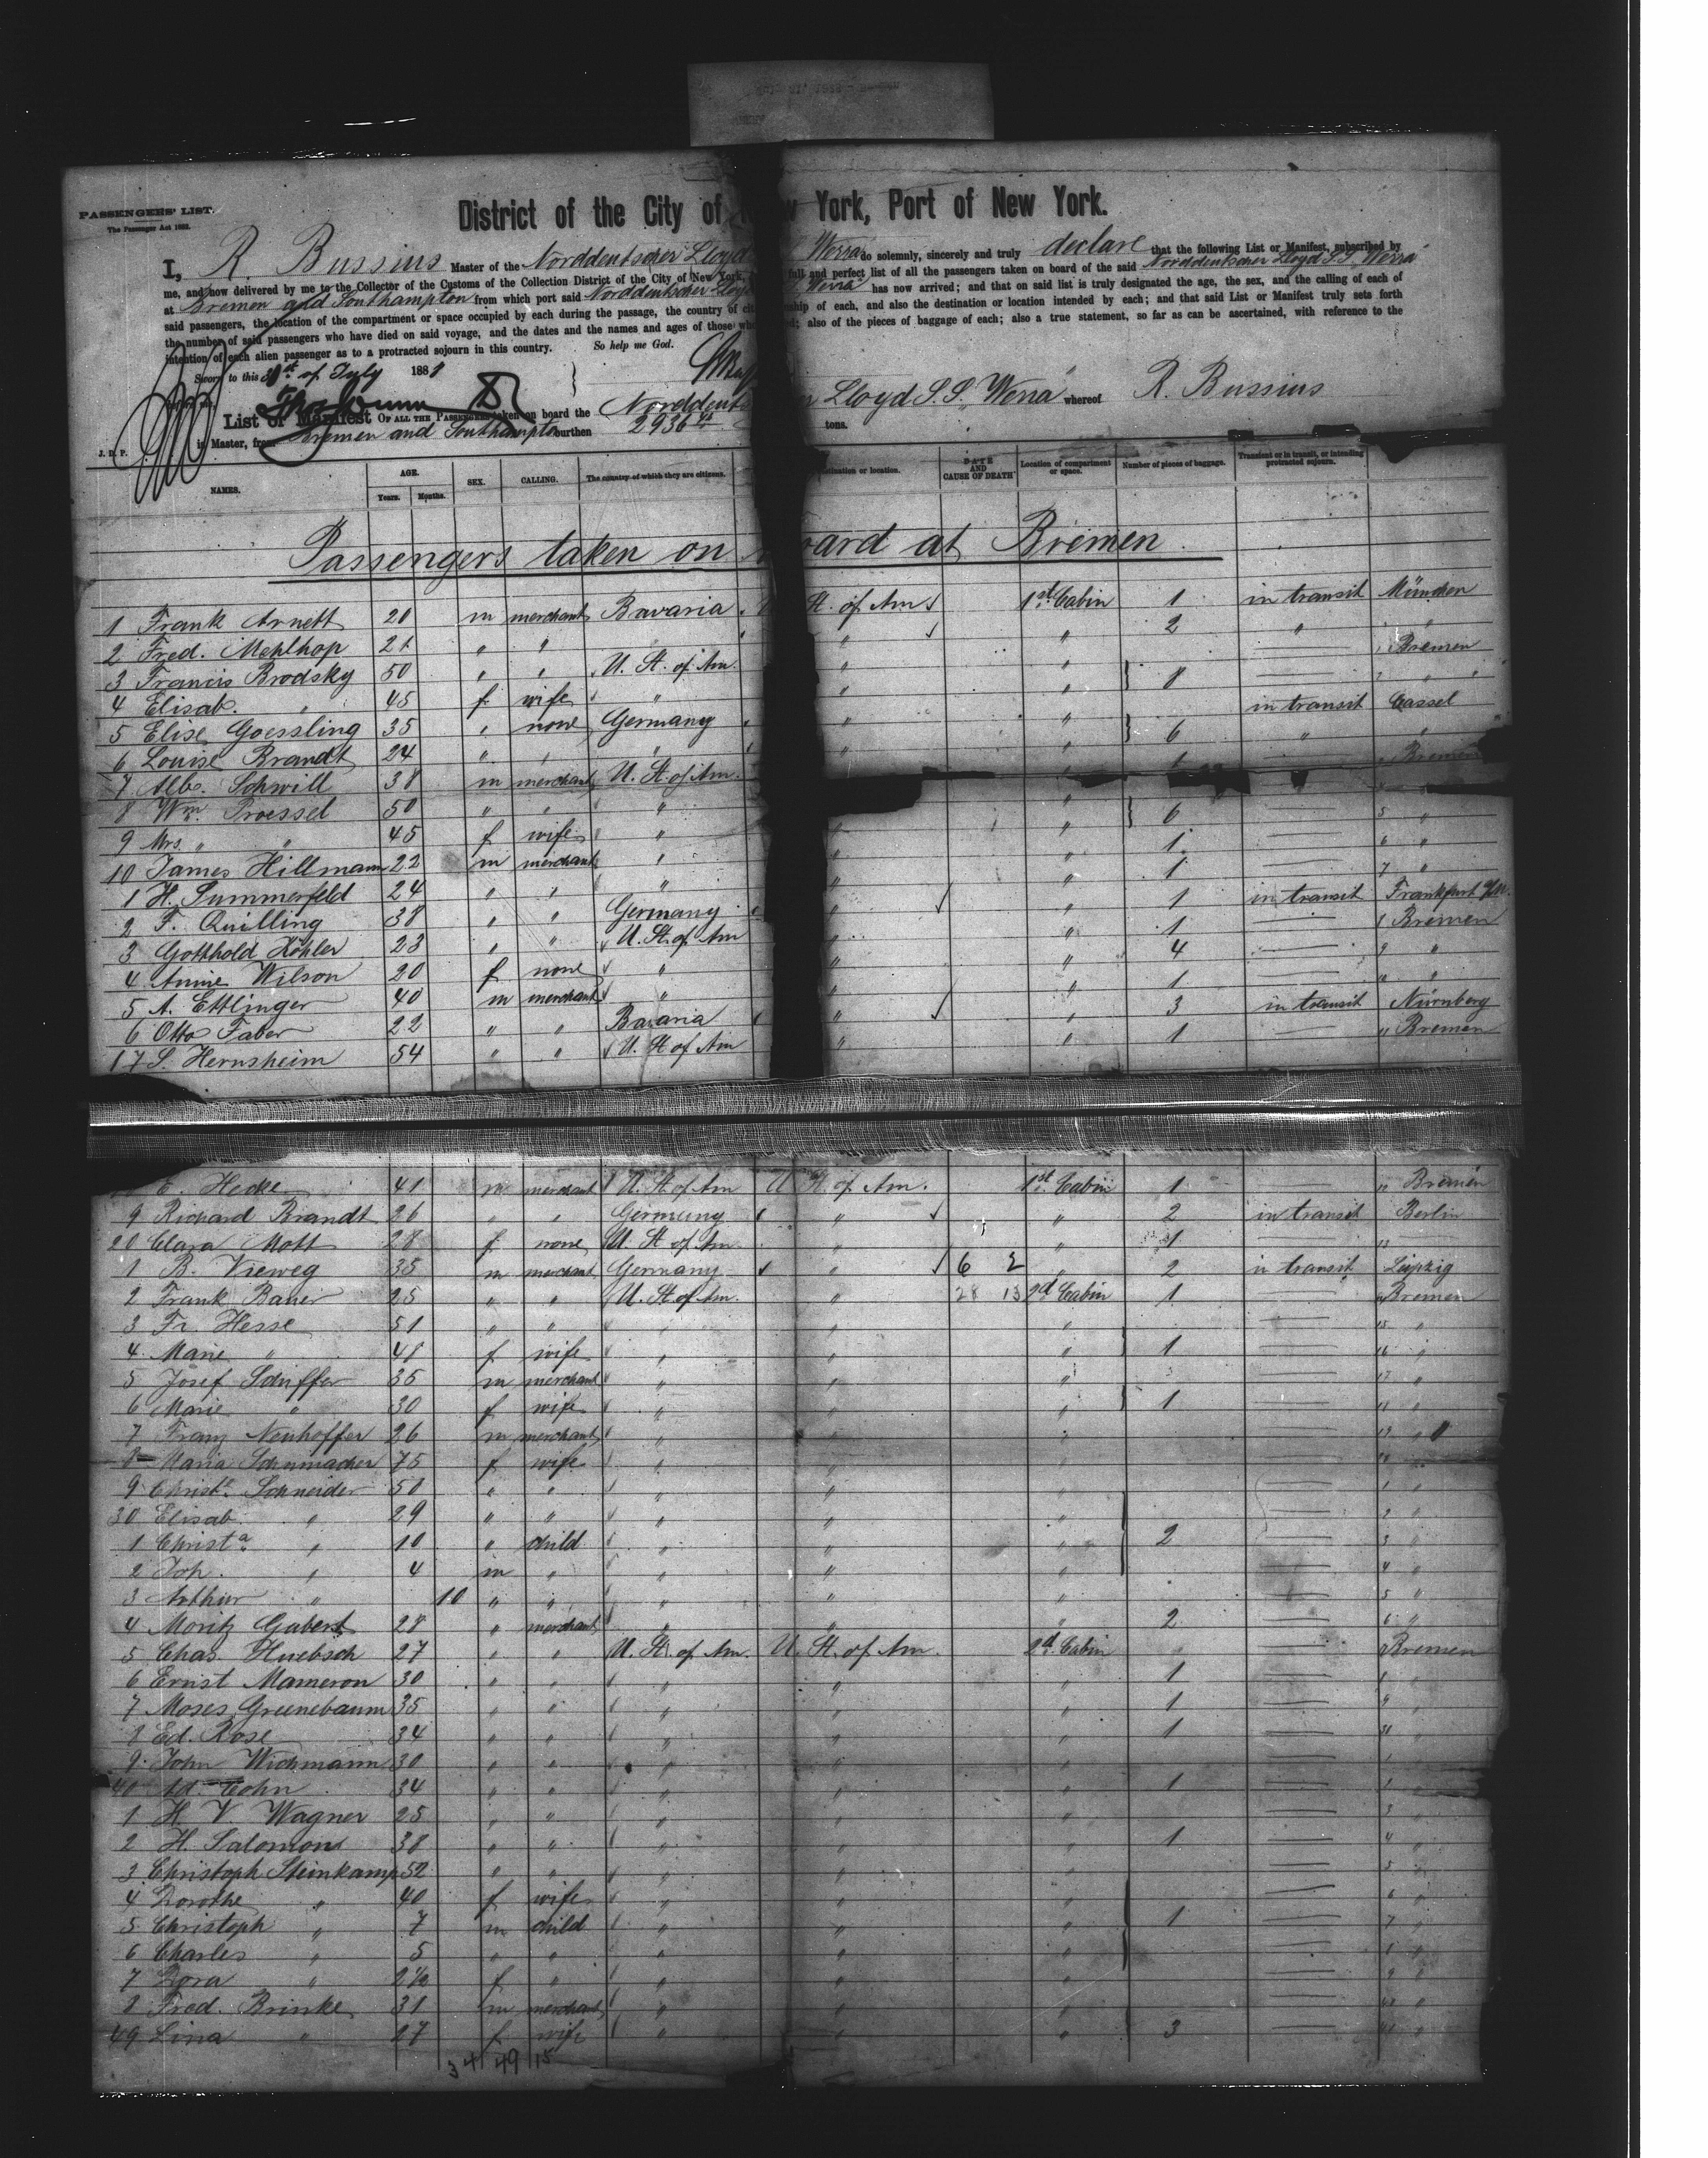 PASSENGERS' LIST.
The Passenger Act 1882.
District of the City of New York, Port of New York.
I, R. Bussius Master of the Norddeutscher Lloyd Werra do solemnly, sincerely and truly declare that the following List or Manifest, subscribed by
me, and now delivered by me to the Collector of the Customs of the Collection District of the City of New York, full and perfect list of all the passengers taken on board of the said Norddeutscher Lloyd S.S. Werra
at Bremen and Southampton from which port said Norddeutscher Lloyd Werra has now arrived; and that on said list is truly designated the age, the sex, and the calling of each of
said passengers, the location of the compartment or space occupied by each during the passage, the country of citizenship of each, and also the destination or location intended by each; and that said List or Manifest truly sets forth
the number of said passengers who have died on said voyage, and the dates and the names and ages of those who also of the pieces of baggage of each; also a true statement, so far as can be ascertained, with reference to the
intention of each alien passenger as to a protracted sojourn in this country. So help me God.
Sworn to this of July 188
List or Manifest OF ALL THE PASSENGERS taken on board the Norddeutscher Lloyd S.S. "Werra" whereof R. Bussius
is Master, from Bremen and Southampton burthen 2936 tons.
J. D. P.
NAMES. AGE. Years. Months. SEX. CALLING. The country of which they are citizens. destination or location. DATE AND CAUSE OF DEATH Location of compartment or space. Number of pieces of baggage. Transient or in transit, or intending protracted sojourn.
Passengers taken on board at Bremen
1 Frank Arnett 20 m merchant Bavaria St. of Am 1st Cabin 1 in transit München
2 Fred. Mehlhop 21 " " " " 2 " "
3 Francis Brodsky 50 " " U. St. of Am. " " Bremen
4 Elisab. " 45 f wife " " " 8 "
5 Elise Goessling 35 " none Germany " " in transit Cassel
6 Louise Brandt 24 " " " " " 6 " "
7 Alb. Schwill 38 m merchant U. St. of Am. " Bremen
8 Wm. Proessel 50 " " " " "
9 Mrs. " 45 f wife " " " 6 "
10 James Hillmann 22 m merchant " " " 1 "
1 H. Summerfeld 24 " " " " " 1 "
2 F. Quilling 38 " " Germany " " 1 in transit Frankfurt a/M.
3 Gotthold Köhler 23 " " U. St. of Am " " 1 Bremen
4 Annie Wilson 20 f none " " " 4 "
5 A. Ettlinger 40 m merchant " " " 1 "
6 Otto Faber 22 " " Bavaria " " 3 in transit Nürnberg
17 S. Hernsheim 54 " " U. St of Am " " 1 Bremen
E. Hecke 41 m merchant U. St. of Am U. St. of Am. 1st Cabin 1 Bremen
9 Richard Brandt 26 " " Germany " " 2 in transit Berlin
20 Clara Mott 28 f none U. St. of Am. " " 1
1 B. Vieweg 35 m merchant Germany " 6 2 " 2 in transit Leipzig
2 Frank Bauer 25 " " U. St. of Am. " 28 13 2d Cabin 1 Bremen
3 Fr. Hesse 51 " " " " " "
4 Marie " 48 f wife " " " 1 "
5 Josef Schiffer 35 m merchant " " " "
6 Marie " 30 f wife " " " 1 "
7 Franz Neuhoffer 26 m merchant " " " "
8 Maria Schumacher 75 f wife " "
9 Christe. Schneider 50 " " " " " "
30 Elisab. " 29 " " " " " "
1 Christa. " 10 " child " " " 2 "
2 Joh. " 4 m " " " " "
3 Arthur " 10 " " " " " "
4 Moritz Gabert 28 " merchant " " " 2 "
5 Chas. Huebsch 27 " " U. St. of Am. U. St. of Am. 2d Cabin Bremen
6 Ernst Mameron 30 " " " " " 1 "
7 Moses Greenebaum 35 " " " " " 1 "
8 Ed. Rose 34 " " " " " 1 "
9 John Wichmann 30 " " " " " "
40 Ad. Cohn 34 " " " " " 1 "
1 H. V. Wagner 25 " " " " " "
2 H. Salomon 38 " " " " " 1 "
3 Christoph Steinkamp 52 " " " " " "
4 Dorothe " 40 f wife " " " "
5 Christoph " 7 m child " " " 1 "
6 Charles " 5 " " " " " "
7 Dora " 2½ f " " " " "
8 Fred. Brinke 31 m merchant " " " "
49 Lina " 27 f wife " " " 3 "
34 49 15